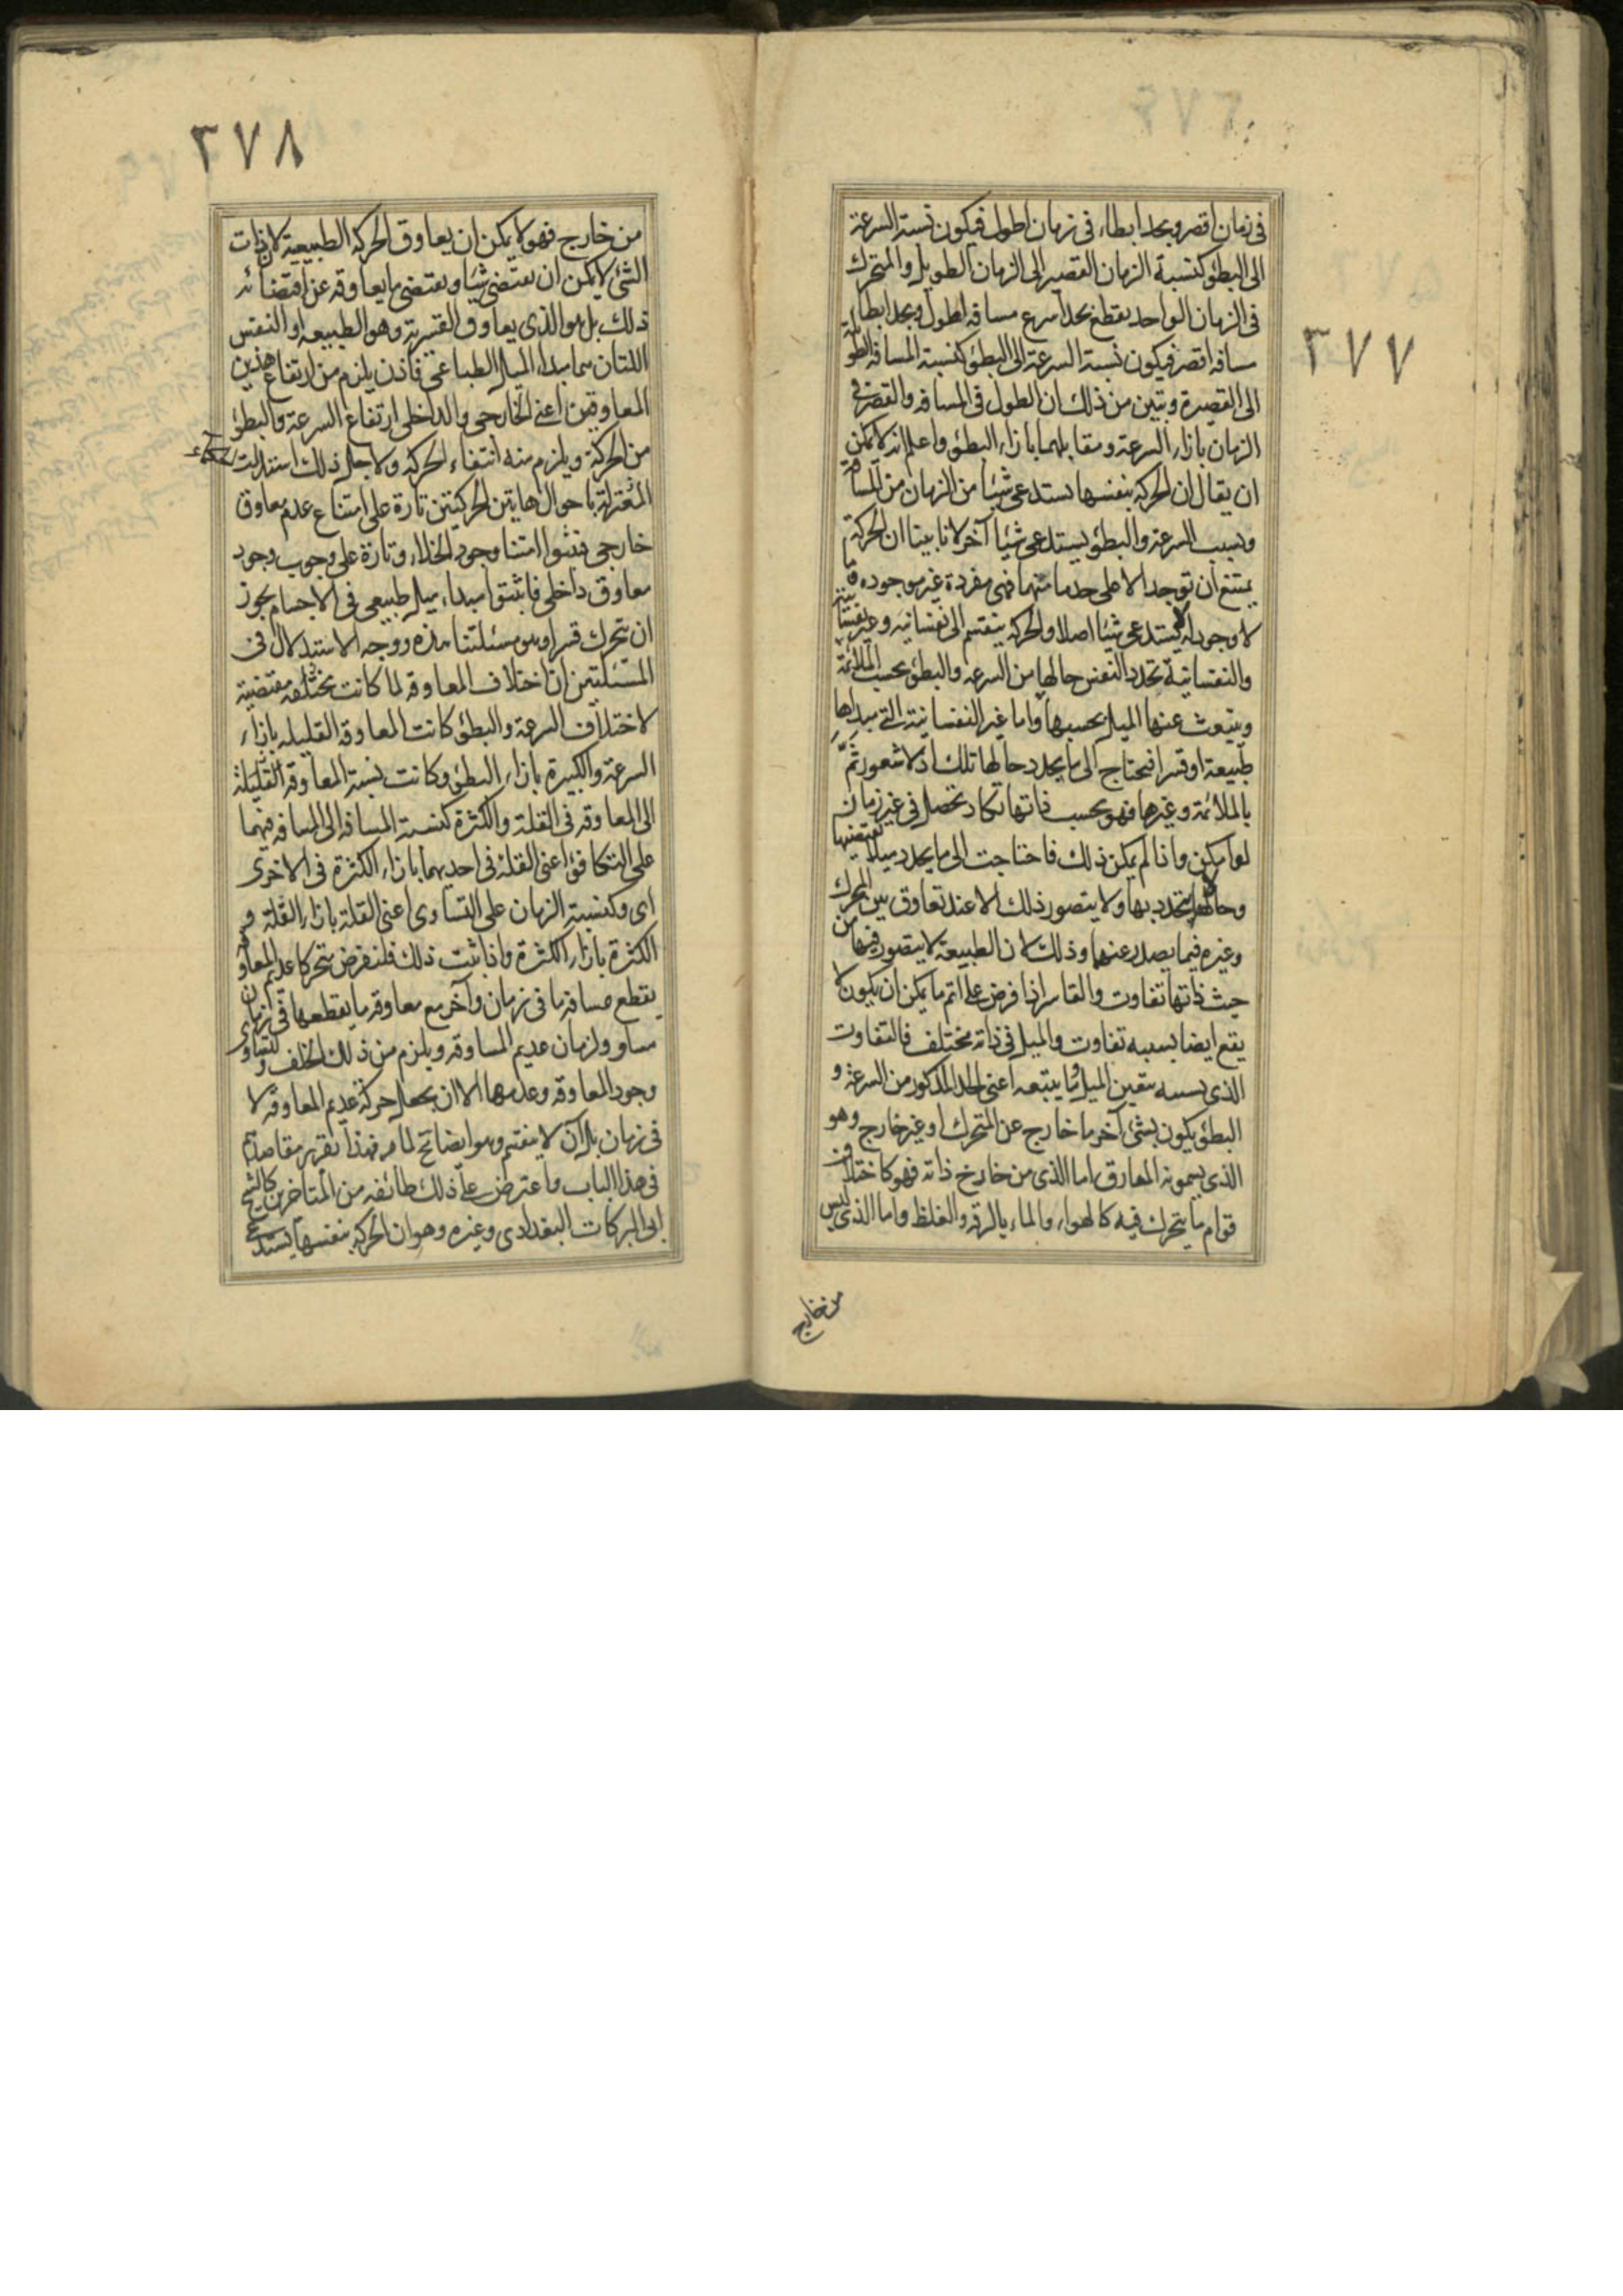 ٣٧٧
فى زمان اقصر وبحد ابطاء فى زمان اطول فيكون نسبة السرعة
الى البطؤ كنسبة الزمان القصير الى الزمان الطويل والمتحرك
فى الزمان الواحد يقطع بحد اسرع مسافه اطول وبحد ابطا
مسافه اقصر فيكون نسبة السرعة الى البطؤ كنسبة المسافه الطويلة
الى القصيرة وتبين من ذلك ان الطول فى المسافه والقصر فى
الزمان بازاء السرعة ومقابلهما بازاء البطؤ واعلم انه لا يمكن
ان يقال ان الحركه بنفسها يستدعى شيئا من الزمان
وبسبب السرعة والبطؤ يستدعى شيئا آخر لانا بينا ان الحركة
يمتنع ان توجد الا على حد ما منهما فهى مفردة غير موجوده و ما
لا وجود له لا يستدعى شيئا اصلا والحركه ينقسم الى نفسانيه وغير نفسانية
والنفسانية يحدد النفس حالها من السرعه والبطؤ بحسب الملائمة
وينبعث عنها الميل بحسبها واما غير النفسانية التى مبداها
طبيعة او قسر افيحتاج الى ما يحدد حالها تلك اذ لا شعور ثم
بالملائمة وغيرها فهو بحسب ذاتها تكاد تحصل فى غير زمان
لو امكن واذا لم يمكن ذلك فاحتاجت الى ما يحدد ميلا يقتضيها
وحالا يتحدد بها ولا يتصور ذلك الا عند تعاوق بين المحرك
وغيره فيما يصدر عنهما وذلك لان الطبيعة لا يتصور فيها من
حيث ذاتها تفاوت والقاسر اذا فرض على اتم ما يمكن ان يكون لا
يقع ايضا بسببه تفاوت والميل فى ذاته مختلف فالتفاوت
الذى بسببه يتعين الميل وما يتبعه اعنى الحد المذكور من السرعة و
البطؤ يكون بشئ آخر ما خارج عن المتحرك او غير خارج وهو
الذى يسمونه المعاوق اما الذى من خارج ذاته فهو كاختلاف
قوام ما يتحرك فيه كالهواء والماء بالرقه والغلظ واما الذى ليس
من خارج
٣٧٨
من خارج فهو لا يمكن ان يعاوق الحركه الطبيعية لان ذات
الشئ لا يمكن ان يقتضى شيئا ويقتضى ما يعاوقه عن اقتضائه
ذلك بل هو الذى يعاوق القسرية وهو الطبيعه او النفس
اللتان هما مبداء الميل الطباعى فاذن يلزم من ارتفاع هذين
المعاوقين اعنى الخارجى والداخلى ارتفاع السرعة والبطؤ
من الحركة ويلزم منه انتفاء الحركه ولاجل ذلك استدلت
باحوال هاتين الحركتين تارة على امتناع عدم معاوق
خارجى فبينوا امتناع وجود الخلاء وتارة على وجوب وجود
معاوق داخلى فاثبتوا مبداء ميل طبيعى فى الاجسام يجوز
ان يتحرك قسرا وهو مسئلتنا هذه ووجه الاستدلال فى
المسئلتين ان اختلاف المعاوقه لما كانت مقتضية
لاختلاف السرعة والبطؤ كانت المعاوقه القليله بازاء
السرعة والكثيرة بازاء البطؤ وكانت نسبة المعاوقه القليلة
الى المعاوقه فى القلة والكثرة كنسبة المسافه الى المسافه فيهما
على التكافؤ اعنى القلة فى احديهما بازاء الكثرة فى الاخرى
اى وكنسبة الزمان على التساوى اعنى القلة بازاء القلة و
الكثرة بازاء الكثرة واذا ثبت ذلك فلنفرض متحركا عديم المعاوقه
يقطع مسافه ما فى زمان وآخر مع معاوقه ما يقطعها فى زمان
مساو ولزمان عديم المساوقه ويلزم من ذلك الخلف لتساوى
وجود المعاوقه وعدمها الا ان يجعل حركة عديم المعاوقه لا
فى زمان بل آن لا ينقسم وهو ايضا مح لما مر فهذا تقرير مقاصدهم
فى هذا الباب واعترض على ذلك طائفه من المتاخرين كالشيخ
ابى البركات البغدادى وغيره وهو ان الحركه بنفسها يستدعى